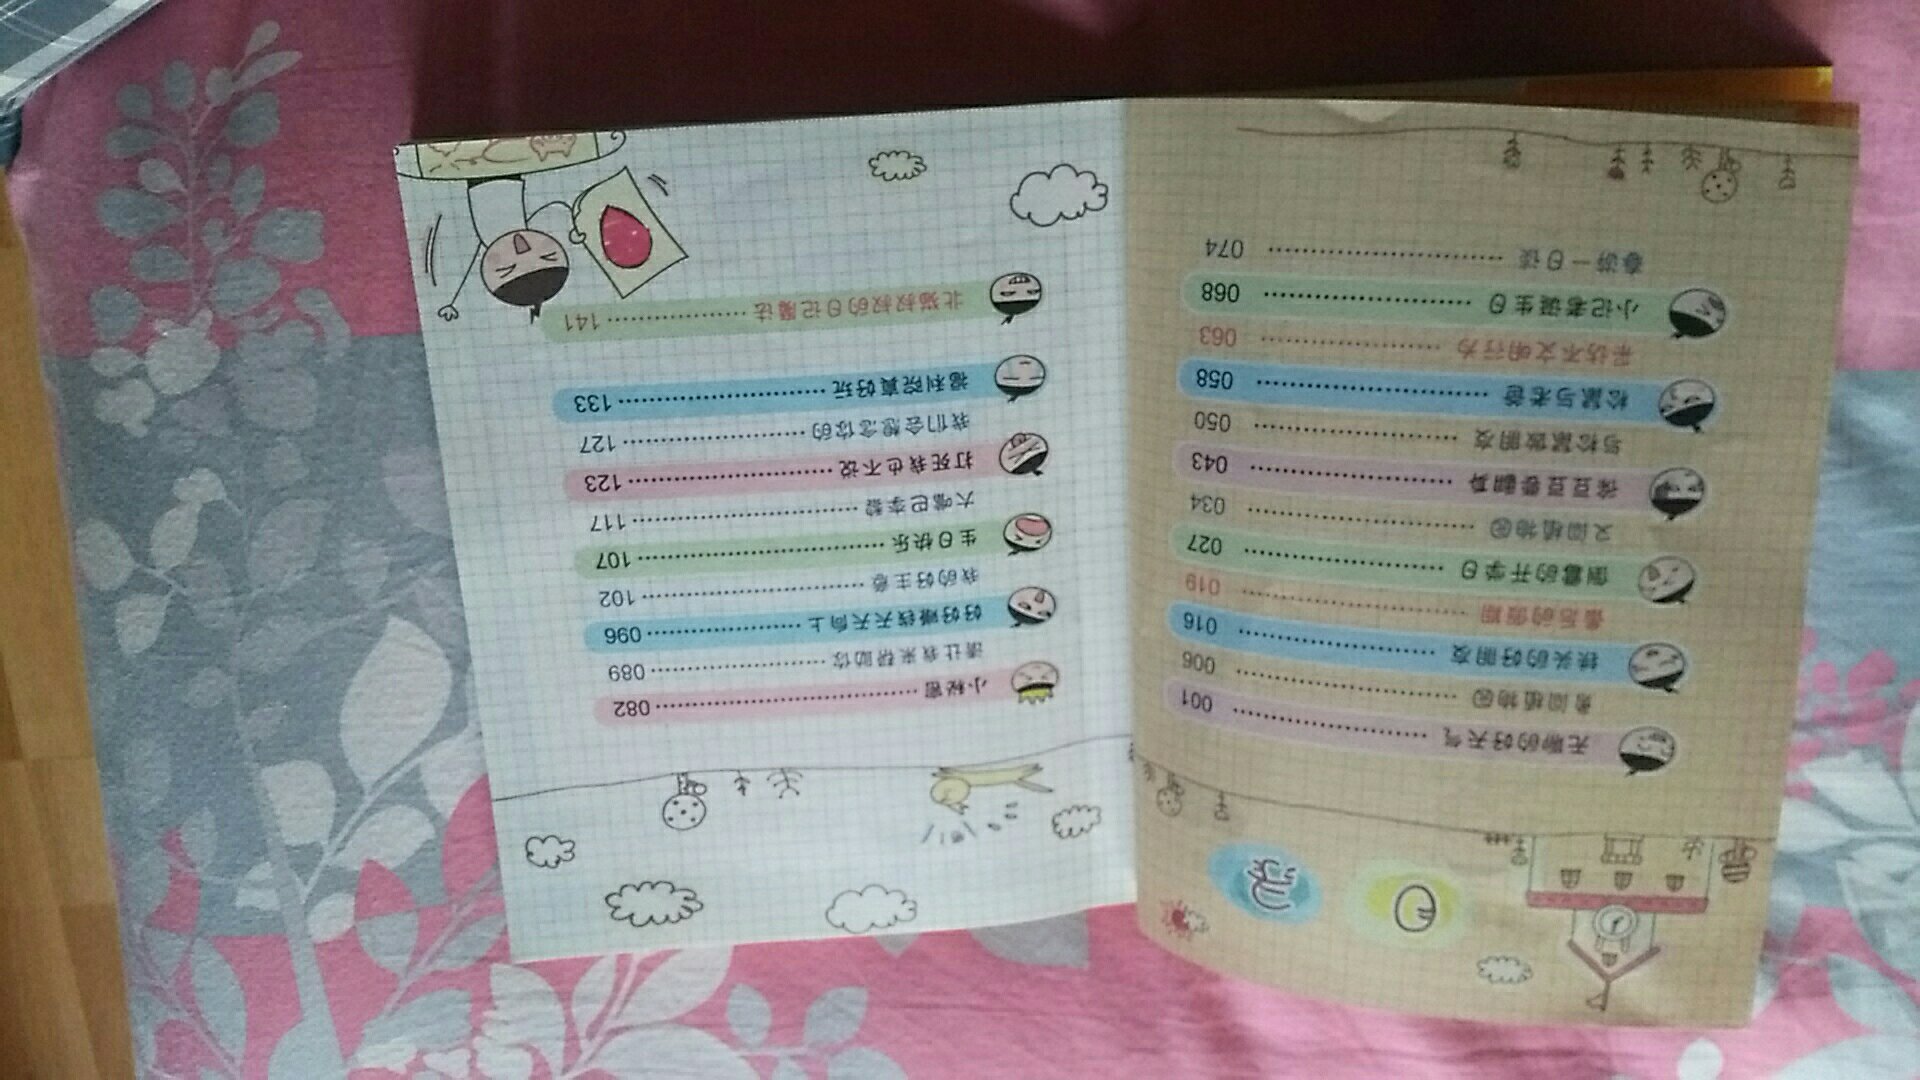 目录
无聊的好天气 ………………… 001
勇闯植物园 ………………… 006
铁头的好朋友 ………………… 016
最后的假期 ………………… 019
倒霉的开学日 ………………… 027
又闯植物园 ………………… 034
豆豆要翻身 ………………… 043
与松鼠做朋友 ………………… 050
松鼠与老爸 ………………… 058
采访不文明行为 ………………… 063
小记者诞生日 ………………… 068
春游一日谈 ………………… 074
小秘密 ………………… 082
请让我来帮助你 ………………… 089
好好赚钱天天向上 ………………… 096
我的好主意 ………………… 102
生日快乐 ………………… 107
大嘴巴李毅 ………………… 117
打死我也不说 ………………… 123
我们会想念你的 ………………… 127
福利院真好玩 ………………… 133
北猫叔叔的日记魔法 ………………… 141